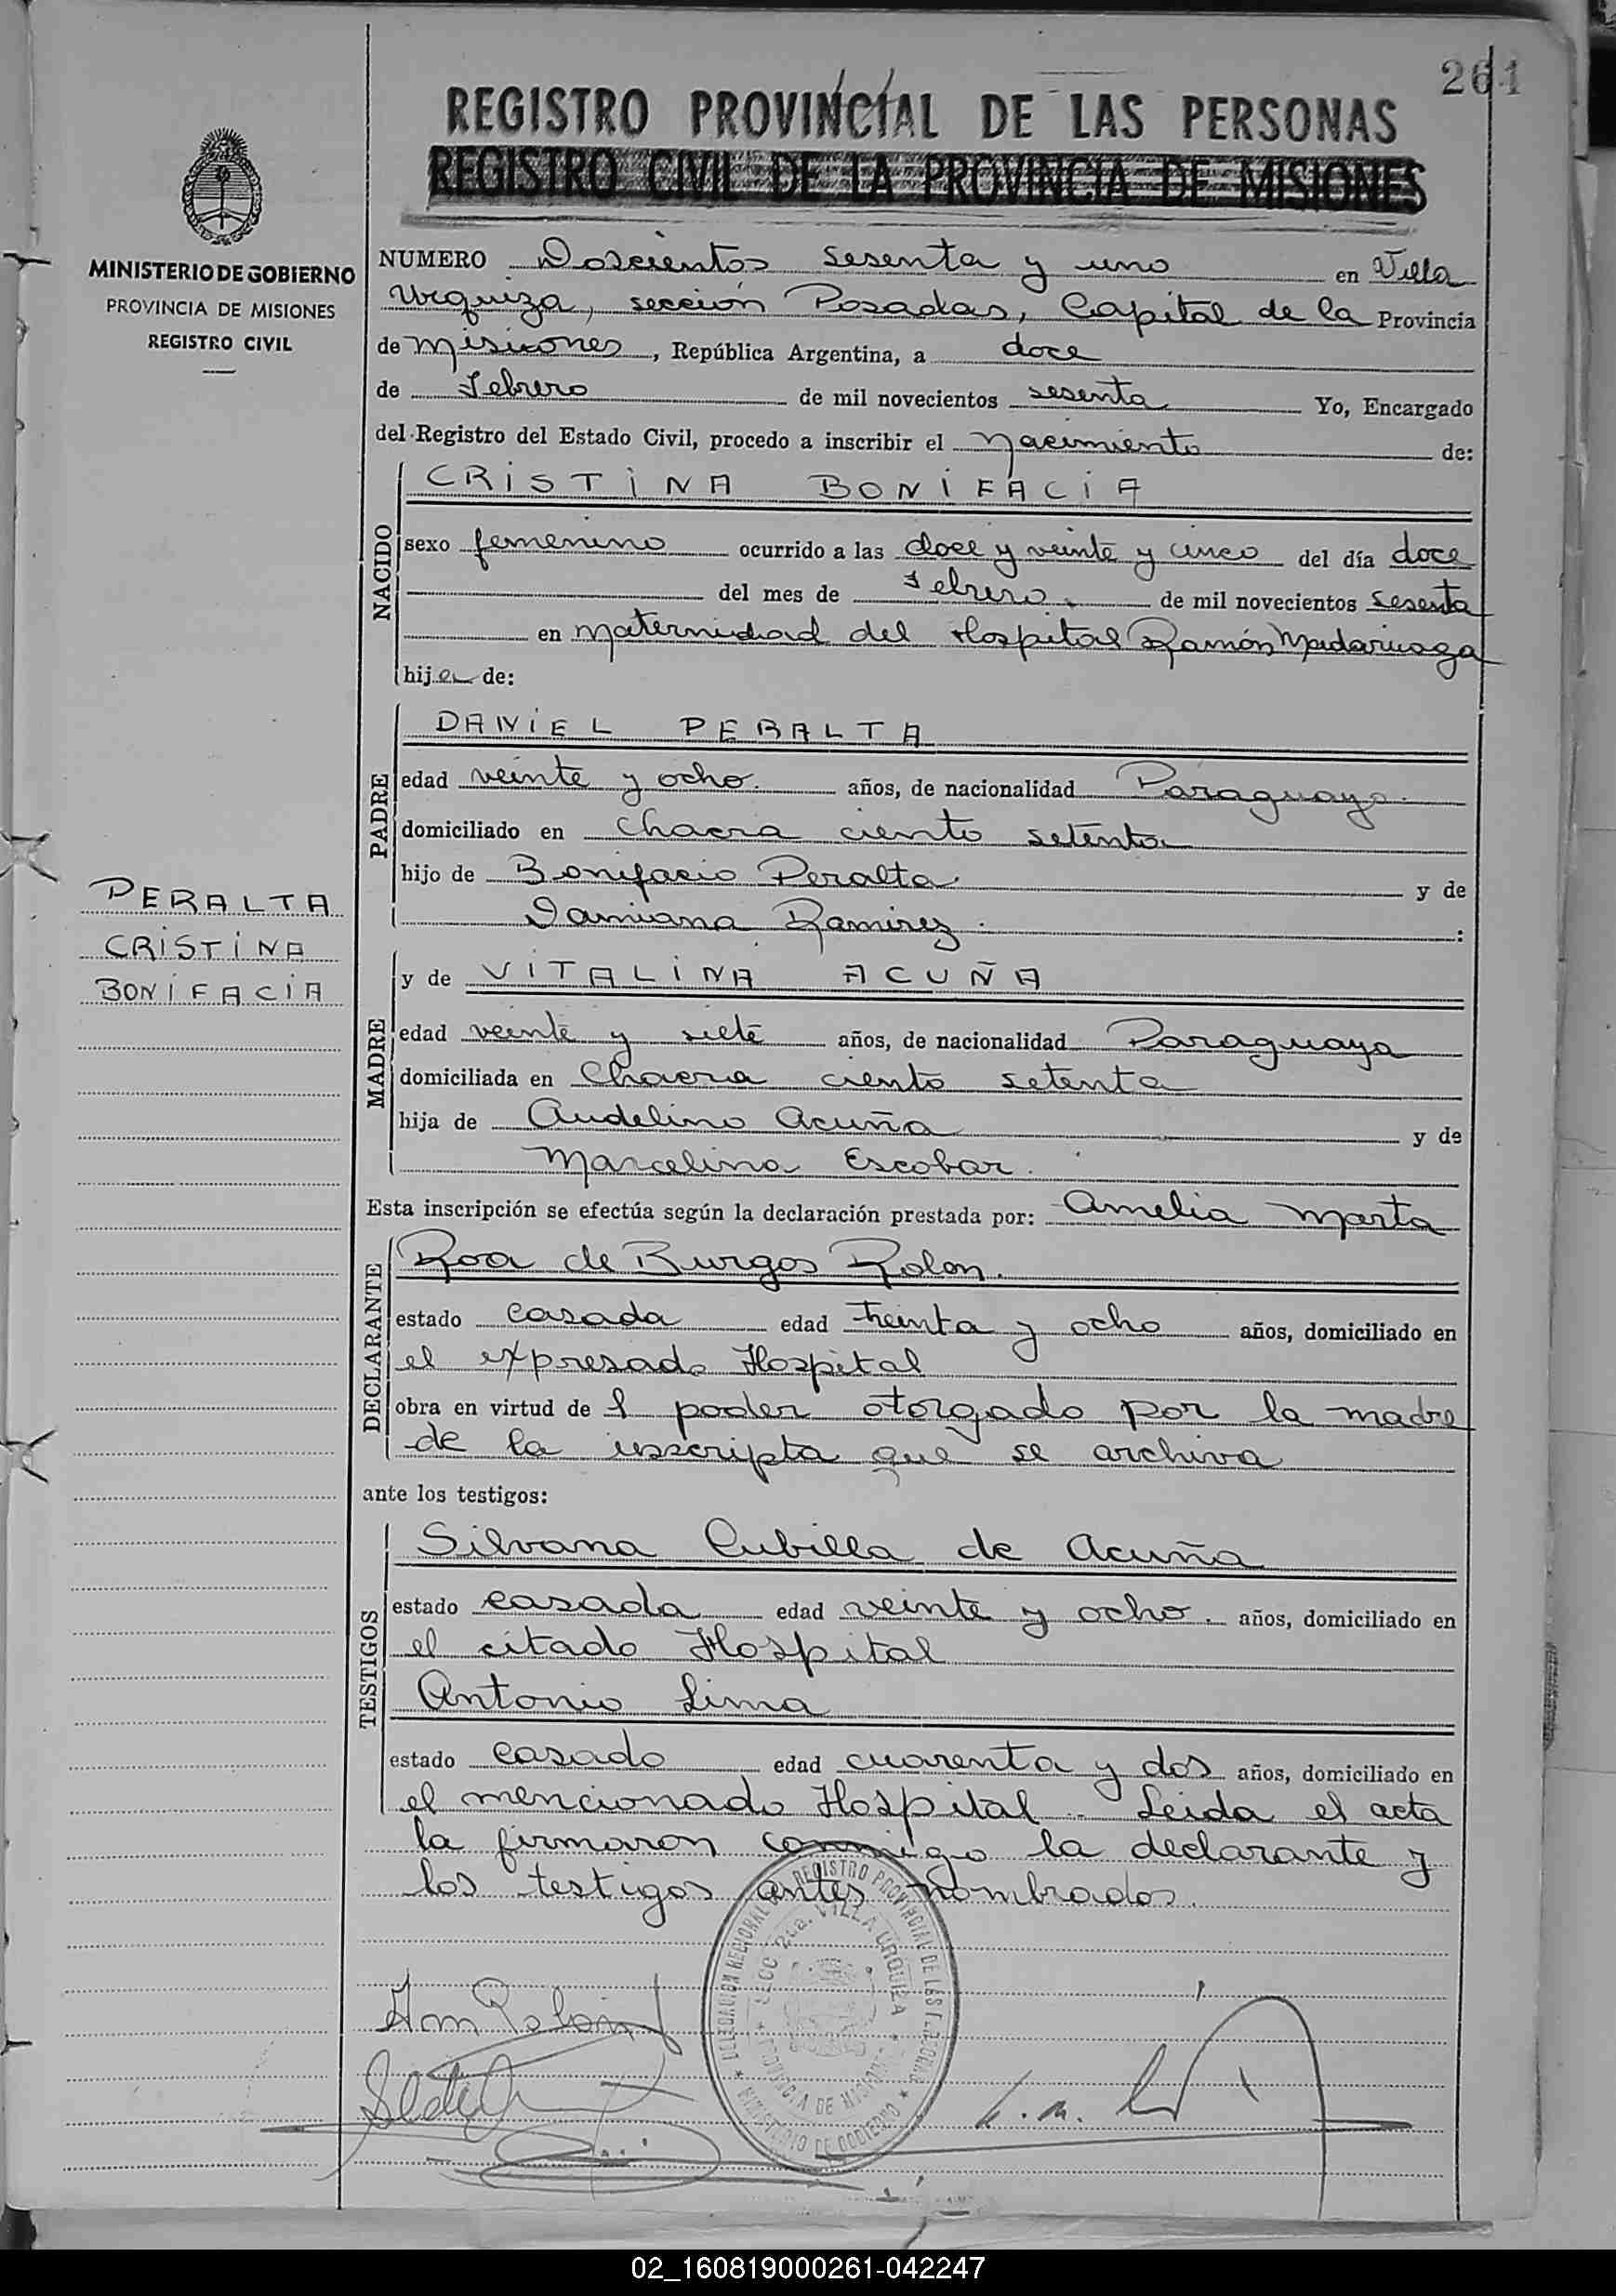 261
REGISTRO PROVINCIAL DE LAS PERSONAS
REGISTRO CIVIL DE LA PROVINCIA DE MISIONES
MINISTERIO DE GOBIERNO
PROVINCIA DE MISIONES
REGISTRO CIVIL
NUMERO Doscientos sesenta y uno en Villa
Urquiza, sección Posadas, Capital de la Provincia
de Misiones, República Argentina, a doce
de Febrero de mil novecientos sesenta Yo, Encargado
del Registro del Estado Civil, procedo a inscribir el Nacimiento de:
NACIDO
CRISTINA BONIFACIA
sexo femenino ocurrido a las doce y veinte y cinco del día doce
del mes de Febrero de mil novecientos sesenta
en Maternidad del Hospital Ramón Madariaga
hija de:
PADRE
DANIEL PERALTA
edad veinte y ocho años, de nacionalidad Paraguayo
domiciliado en Chacra ciento setenta
hijo de Bonifacio Peralta y de
Damiana Ramirez.
PERALTA
CRISTINA
BONIFACIA
MADRE
y de VITALINA ACUÑA
edad veinte y siete años, de nacionalidad Paraguaya
domiciliada en Chacra ciento setenta
hija de Audelino Acuña y de
Marcelina Escobar.
Esta inscripción se efectúa según la declaración prestada por: Amelia Marta
DECLARANTE
Roa de Burgos Rolon.
estado casada edad treinta y ocho años, domiciliado en
el expresado Hospital
obra en virtud de l poder otorgado por la madre
de la inscripta que se archiva
ante los testigos:
TESTIGOS
Silvana Cubilla de Acuña
estado casada edad veinte y ocho. años, domiciliado en
el citado Hospital
Antonio Lima
estado casado edad cuarenta y dos años, domiciliado en
el mencionado Hospital. Leida el acta
la firmaron conmigo la declarante y
los testigos antes nombrados.
DELEGACION REGIONAL REGISTRO PROVINCIAL DE LAS PERSONAS
SECC 2da. VILLA URQUIZA
PROVINCIA DE MISIONES
MINISTERIO DE GOBIERNO
02_160819000261-042247